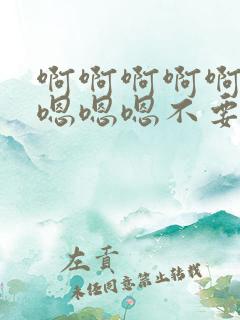 啊啊啊啊啊
嗯嗯嗯不要
左贡
未经同意禁止转载